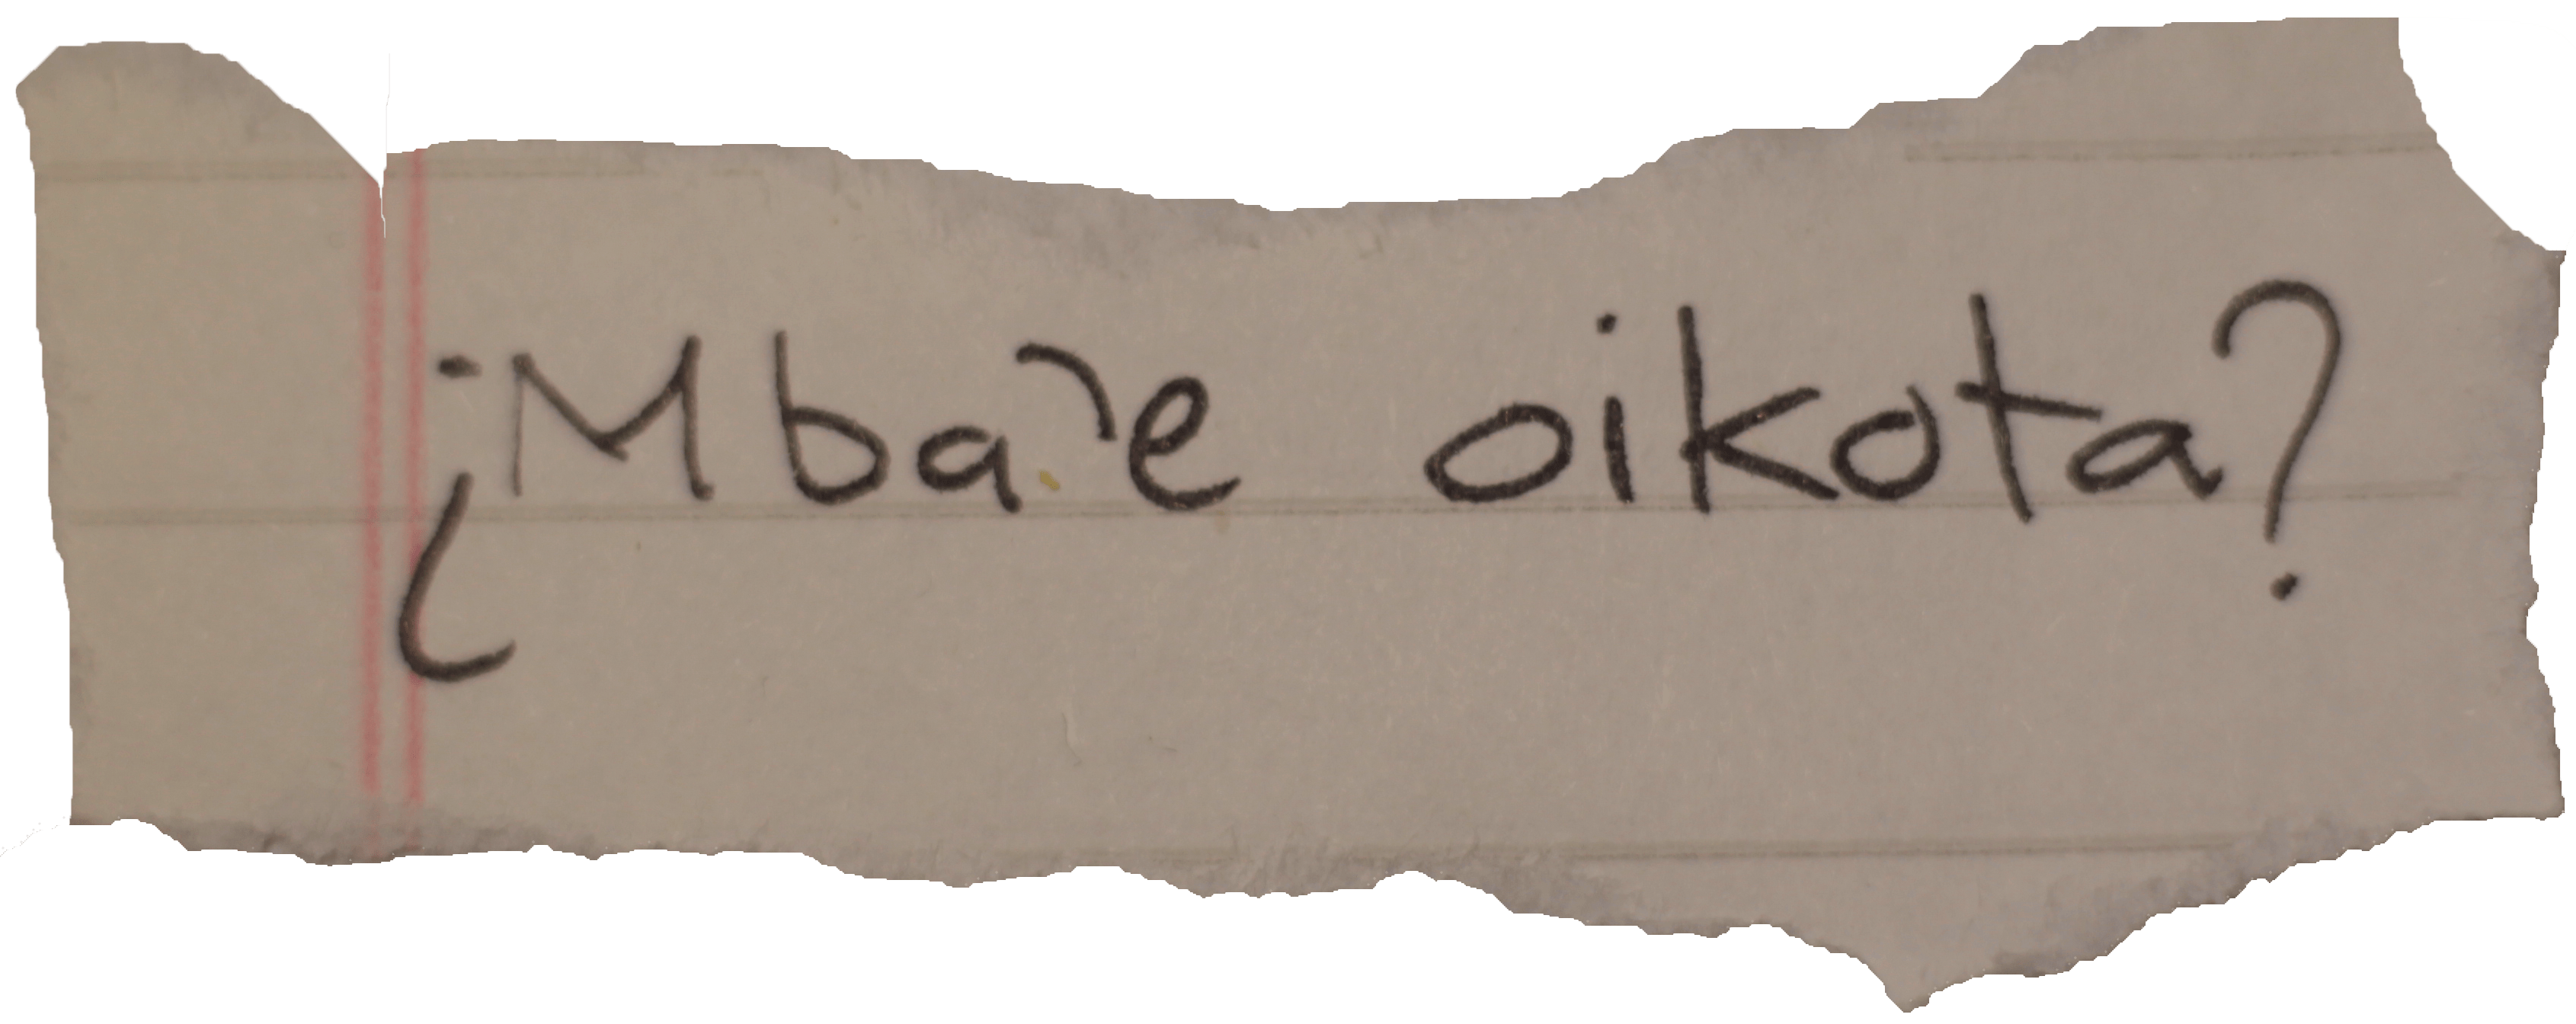 ¿Mba'e oikota?